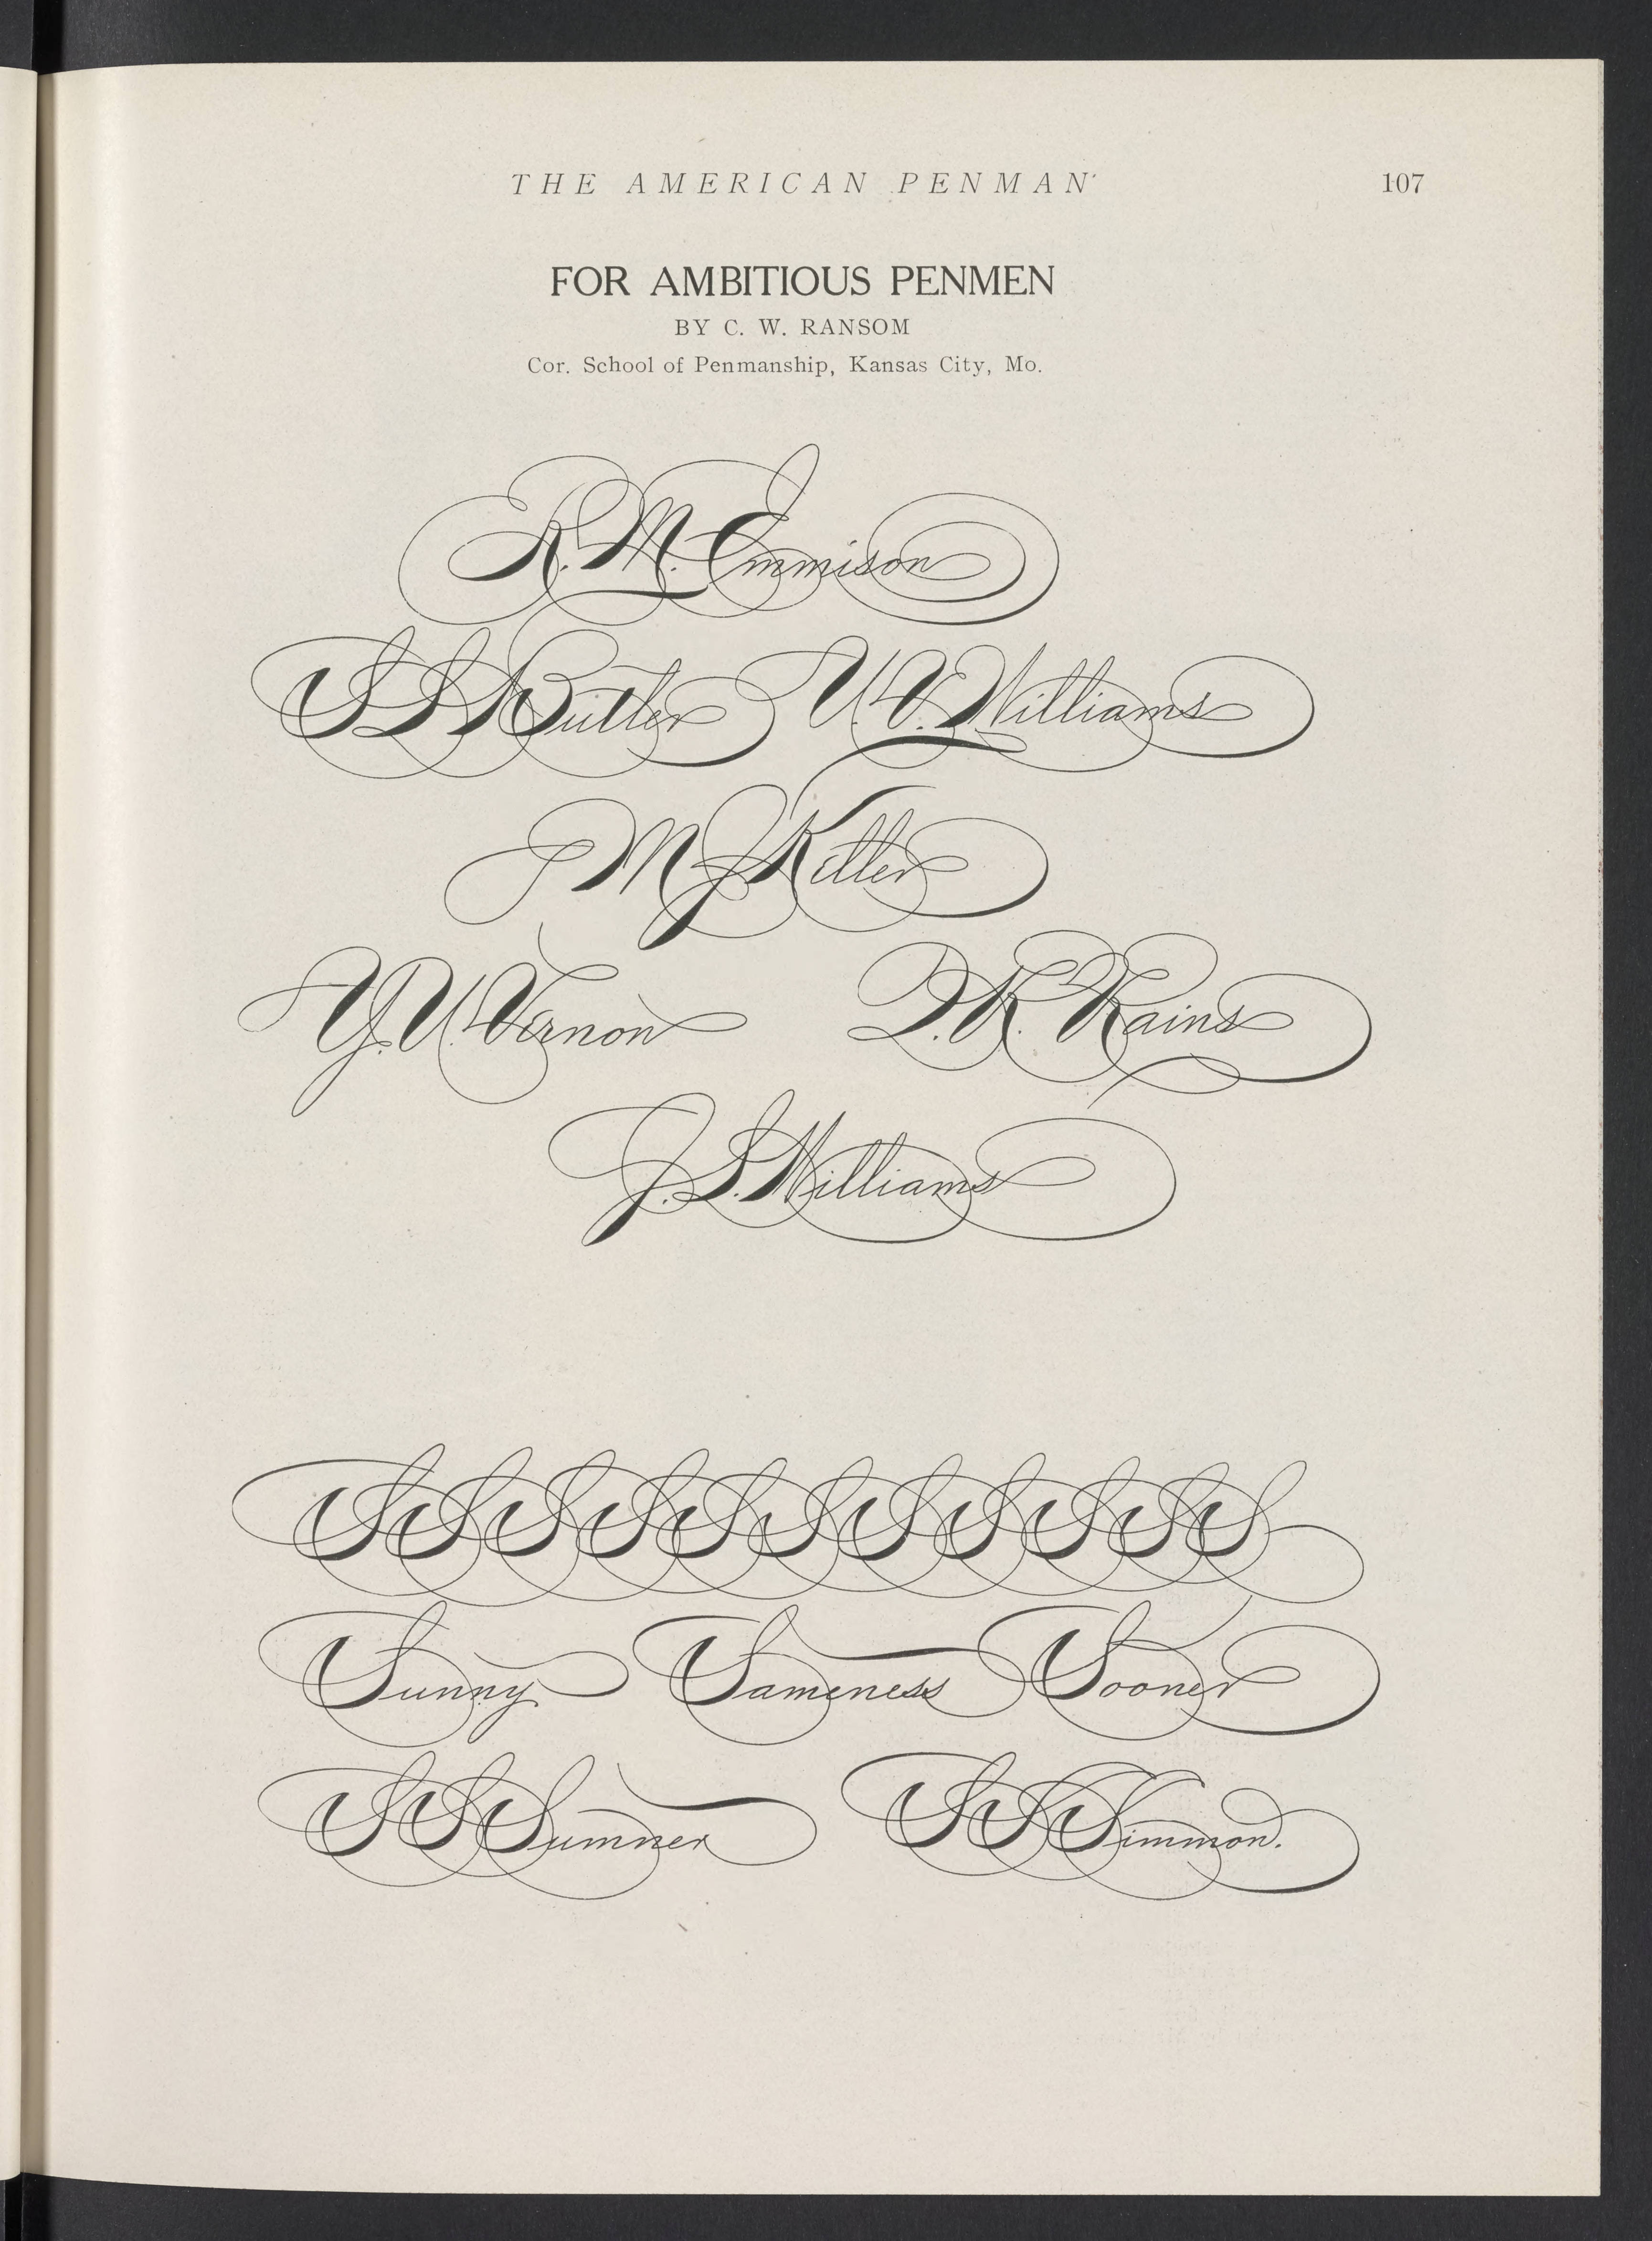 THE AMERICAN PENMAN 107
FOR AMBITIOUS PENMEN
BY C. W. RANSOM
Cor. School of Penmanship, Kansas City, Mo.
R. M. Emmison
S S Butler U. V. Williams
M J Keller
Y. U. Vernon D. K. Rains
J. S. Williams
S S S S S S S S S S S
Sunny Sameness Sooner
S S Sumner S S Simmon.